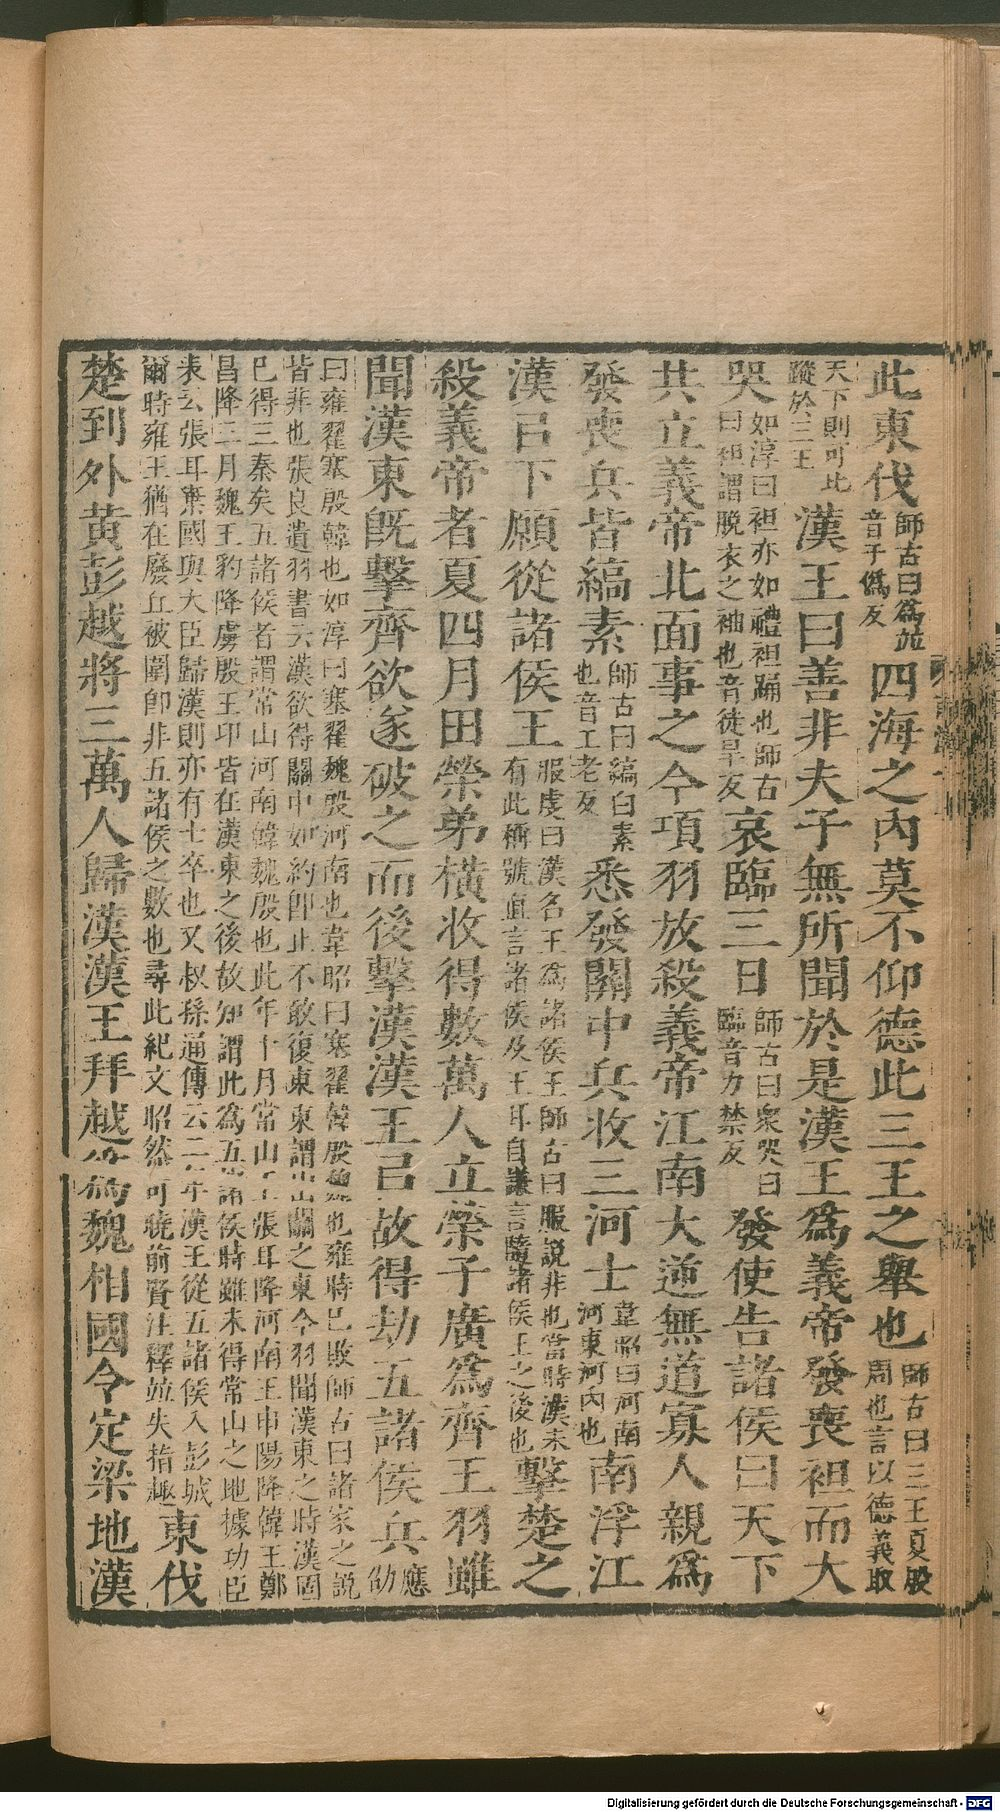 此東伐師古曰爲竝音于僞反四海之內莫不仰德此三王之舉也師古曰三王夏殷周也言以德義取
天下則可比蹤於三王漢王曰善非夫子無所聞於是漢王爲義帝發喪袒而大
哭如淳曰袒亦如禮袒踊也師古曰袒謂脫衣之袖也音徒旱反哀臨三日師古曰衆哭曰臨音力禁反發使告諸侯曰天下
共立義帝北面事之今項羽放殺義帝江南大逆無道寡人親爲
發喪兵皆縞素師古曰縞白素也音工老反悉發關中兵收三河士韋昭曰河南河東河內也南浮江
漢已下願從諸侯王服虔曰漢名王爲諸侯王師古曰服說非也當時漢未有此稱號直言諸侯及王耳自謙言隨諸侯王之後也擊楚之
殺義帝者夏四月田榮弟橫收得數萬人立榮子廣爲齊王羽雖
聞漢東旣擊齊欲遂破之而後擊漢漢王已故得劫五諸侯兵應劭
曰雍翟塞殷韓也如淳曰塞翟魏殷河南也韋昭曰塞翟韓殷魏也雍時已敗師古曰諸家之說
皆非也張良遺羽書云漢欲得關中如約卽止不敢復東東謂出關之東今羽聞漢東之時漢固
已得三秦矣五諸侯者謂常山河南韓魏殷也此年十月常山王張耳降河南王申陽降韓王鄭
昌降三月魏王豹降虜殷王卬皆在漢東之後故知謂此爲五諸侯時雖未得常山之地據功臣
表云張耳棄國與大臣歸漢則亦有士卒也又叔孫通傳云二年漢王從五諸侯入彭城
爾時雍王猶在廢丘被圍卽非五諸侯之數也尋此紀文昭然可曉前賢注釋竝失指趣東伐
楚到外黃彭越將三萬人歸漢漢王拜越爲魏相國令定梁地漢
Digitalisierung gefördert durch die Deutsche Forschungsgemeinschaft - DFG